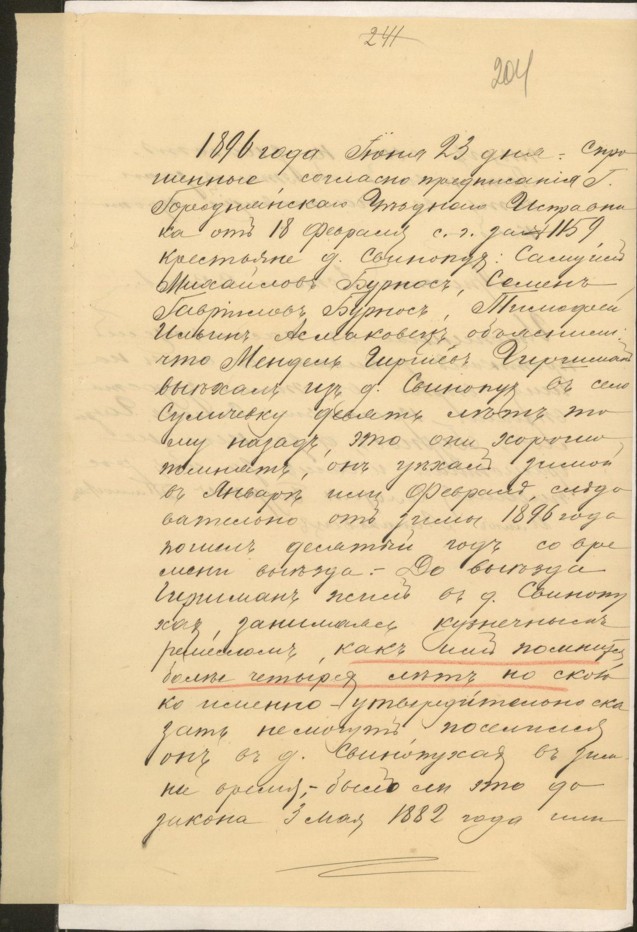 241
204
1896 года Июня 23 дня: Спро
шенные согласно предписанія Г.
Городнянскаго Уѣзднаго Исправни
ка отъ 18 Февраля с. г. за № 1159
крестьяне д. Свинопухъ: Самуилъ
Михайловъ Бурносъ, Семенъ
Гавріловъ Бурносъ, Тимофей
Ильинъ Асмаковецъ объяснили:
что Мендель Гиршевъ
выѣхалъ изъ д. Свинопухъ въ село
Суличевку девять лѣтъ то
му назадъ, это они хорошо
помнятъ, онъ уѣхалъ зимой
въ Январѣ или Февралѣ, слѣдо
вательно отъ зимы 1896 года
пошелъ десятый годъ со вре
мени выѣзда. – До выѣзда
жилъ въ д. Свинопу
хахъ, занимаясь кузнечнымъ
ремесломъ, какъ имъ помнится
болѣе четырехъ лѣтъ но сколь
ко именно – утвердительно ска
зать немогутъ поселился
онъ въ д. Свинопухахъ въ зим-
не время, – было ли это до
закона 3 мая 1882 года или